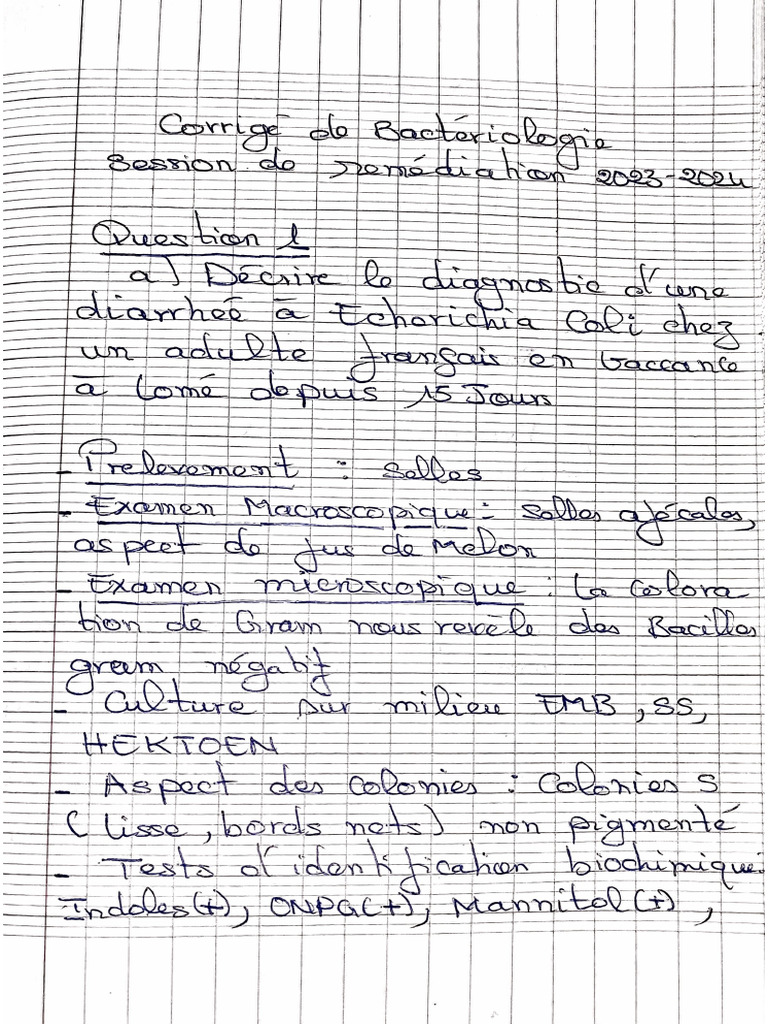 Corrigé de Bactériologie
Session de remédiation 2023-2024
Question 1
a) Décrire le diagnostic d'une
diarrheé à Echerichia Coli chez
un adulte français en vaccance
à Lomé depuis 15 Jours
- Prelevement : Selles
- Examen Macroscopique : Selles afécales,
aspect de jus de Melon
- Examen microscopique : La Colora
tion de Gram nous revèle des Bacilles
gram négatif
- Culture sur milieu EMB, SS,
HEKTOEN
- Aspect des colonies : Colonies S
( lisse, bords nets) non pigmenté
- Tests d'identification biochimique:
Indoles(+), ONPG(+), Mannitol(+),